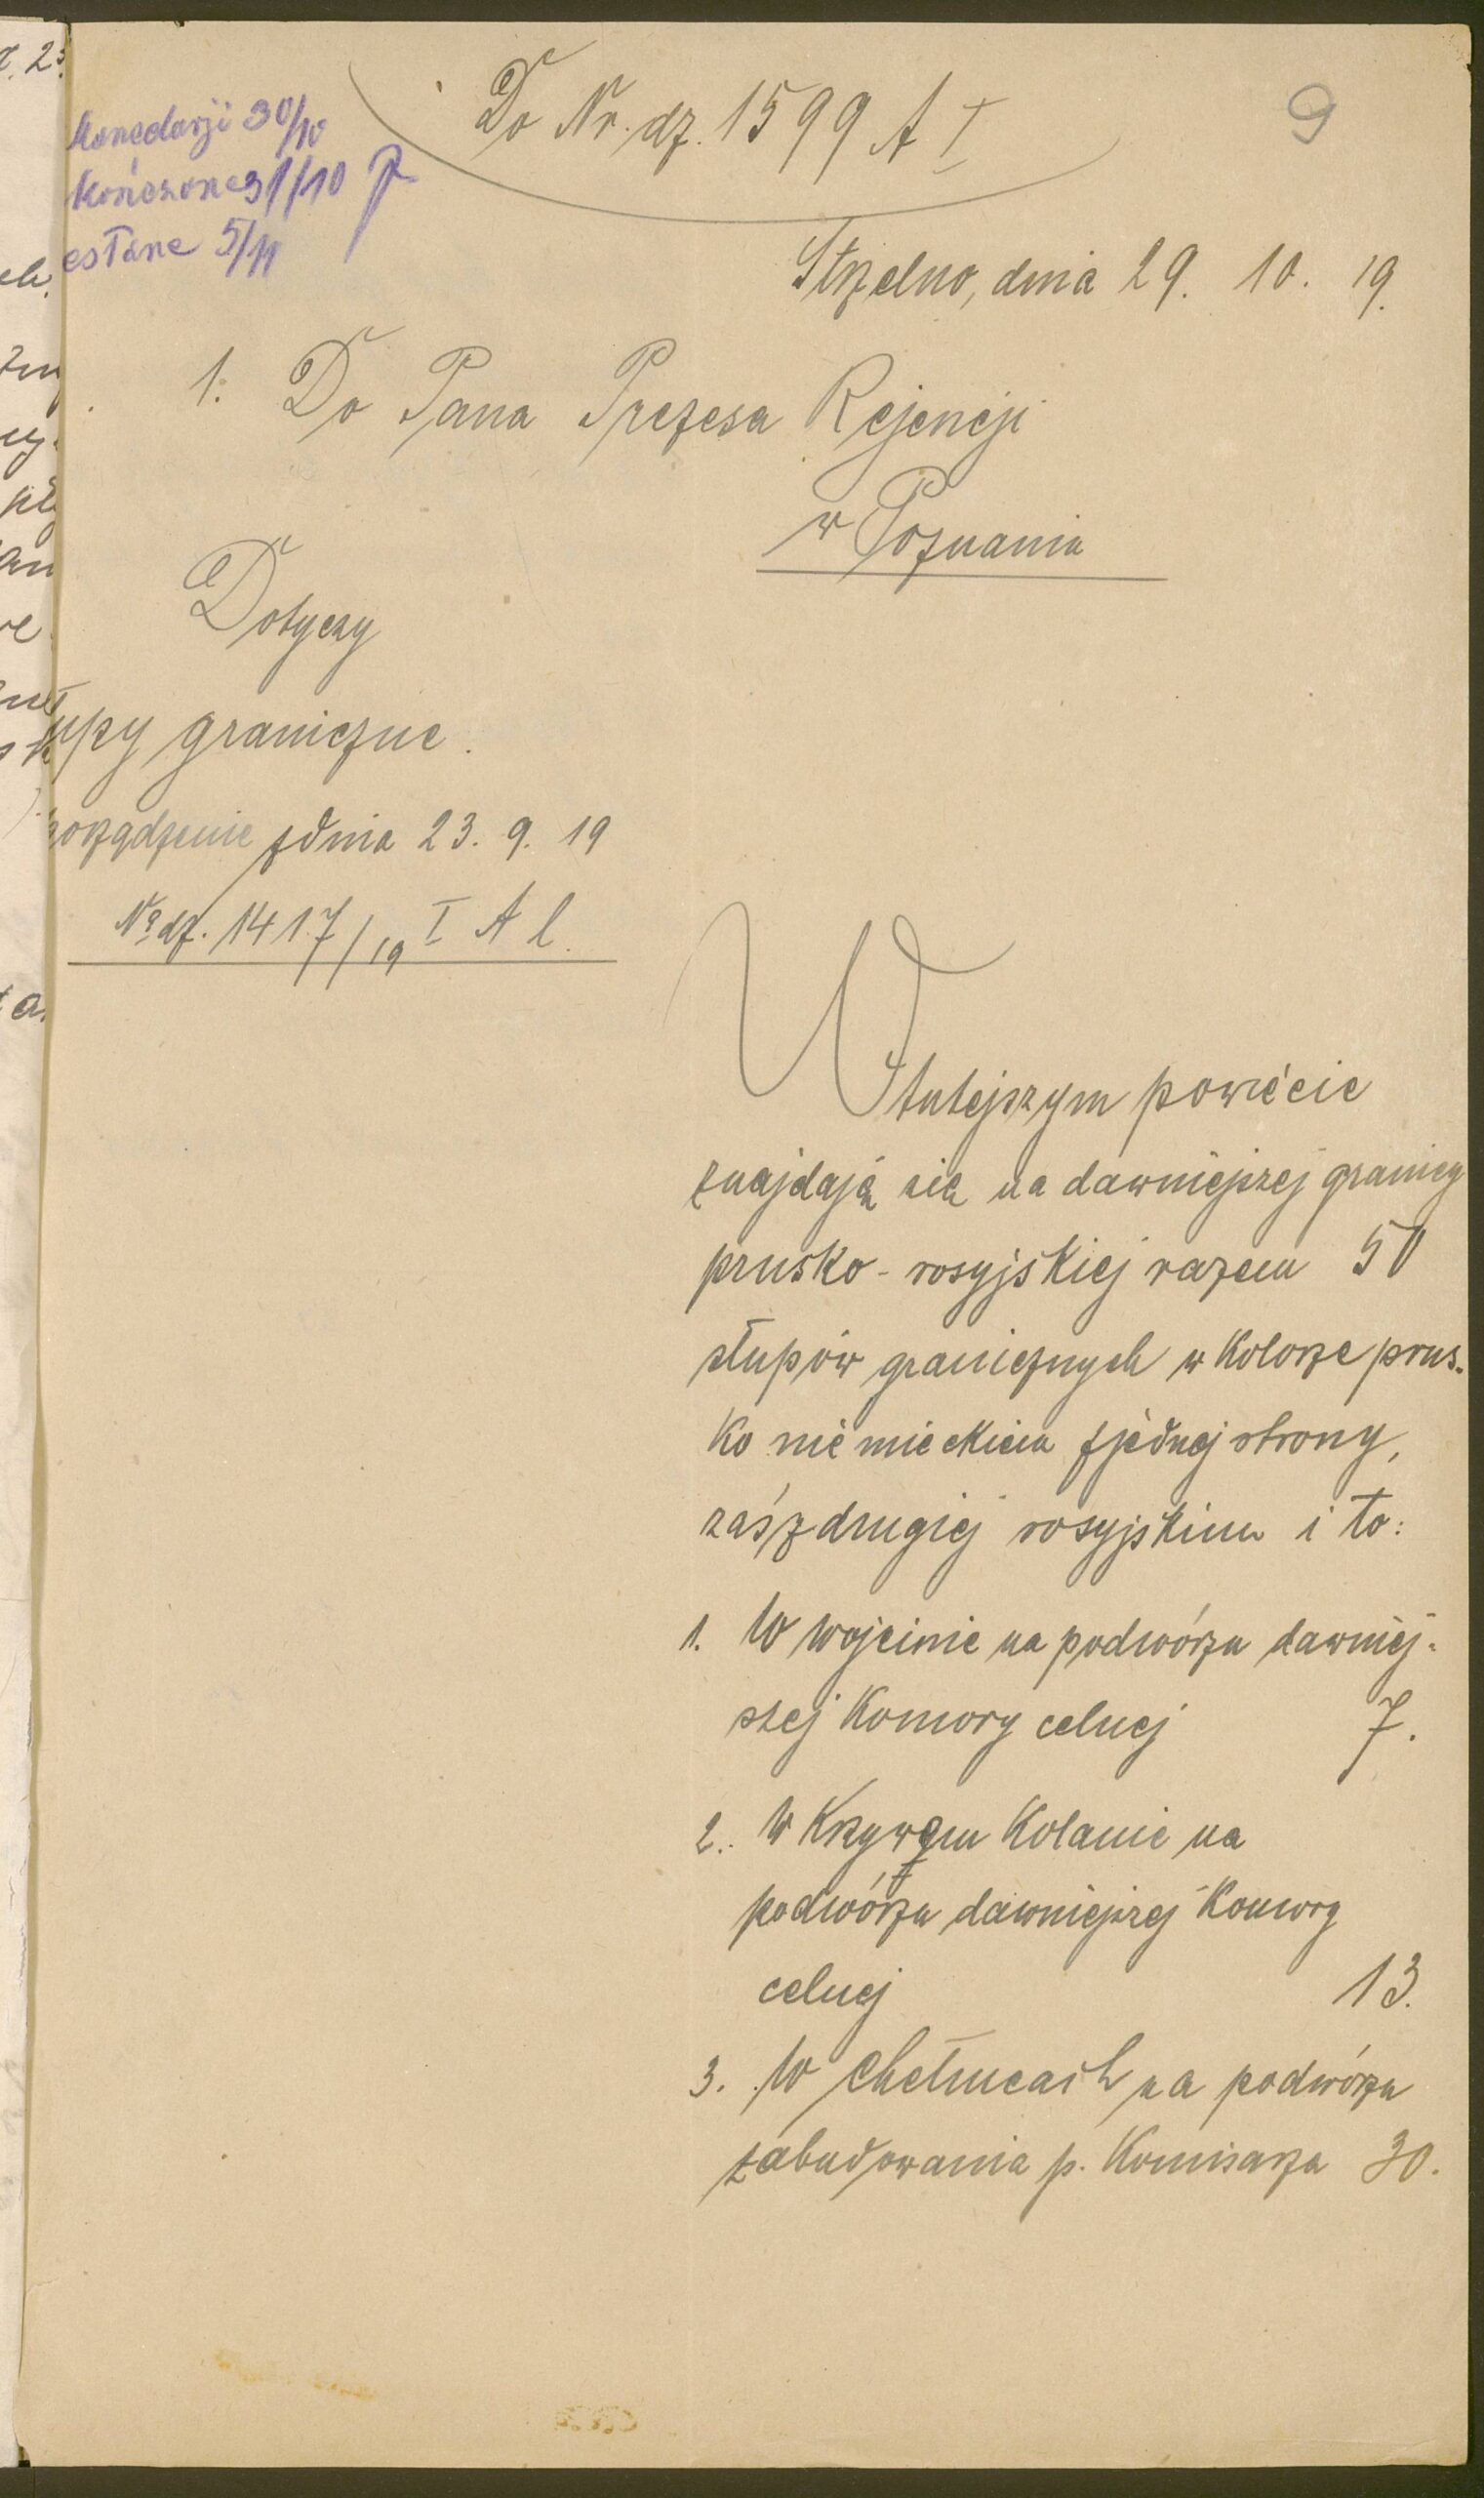 Do Nr. dz. 1599 A I
9
30/10
31/10
5/11
Strzelno, dnia 29. 10. 19.
1. Do Pana Prezesa Rejencji
w Poznaniu
Dotyczy
upy graniczne.
porządzenie z dnia 23. 9. 19
No dz. 1417/19 I A l.
W tutejszym powiecie
znajdają się na dawniejszej granicy
prusko-rosyjskiej razem 50
słupów granicznych w kolorze prus-
ko niemieckim z jednej strony,
zaś z drugiej rosyjskim i to:
1. W Wojcinie na podwórzu dawniej-
szej Komory celnej 7.
2. W Krzywem Kolanie na
podwórzu dawniejszej Komory
celnej 13.
3. W Chełmcach na podwórzu
zabudowania p. Komisarza 30.